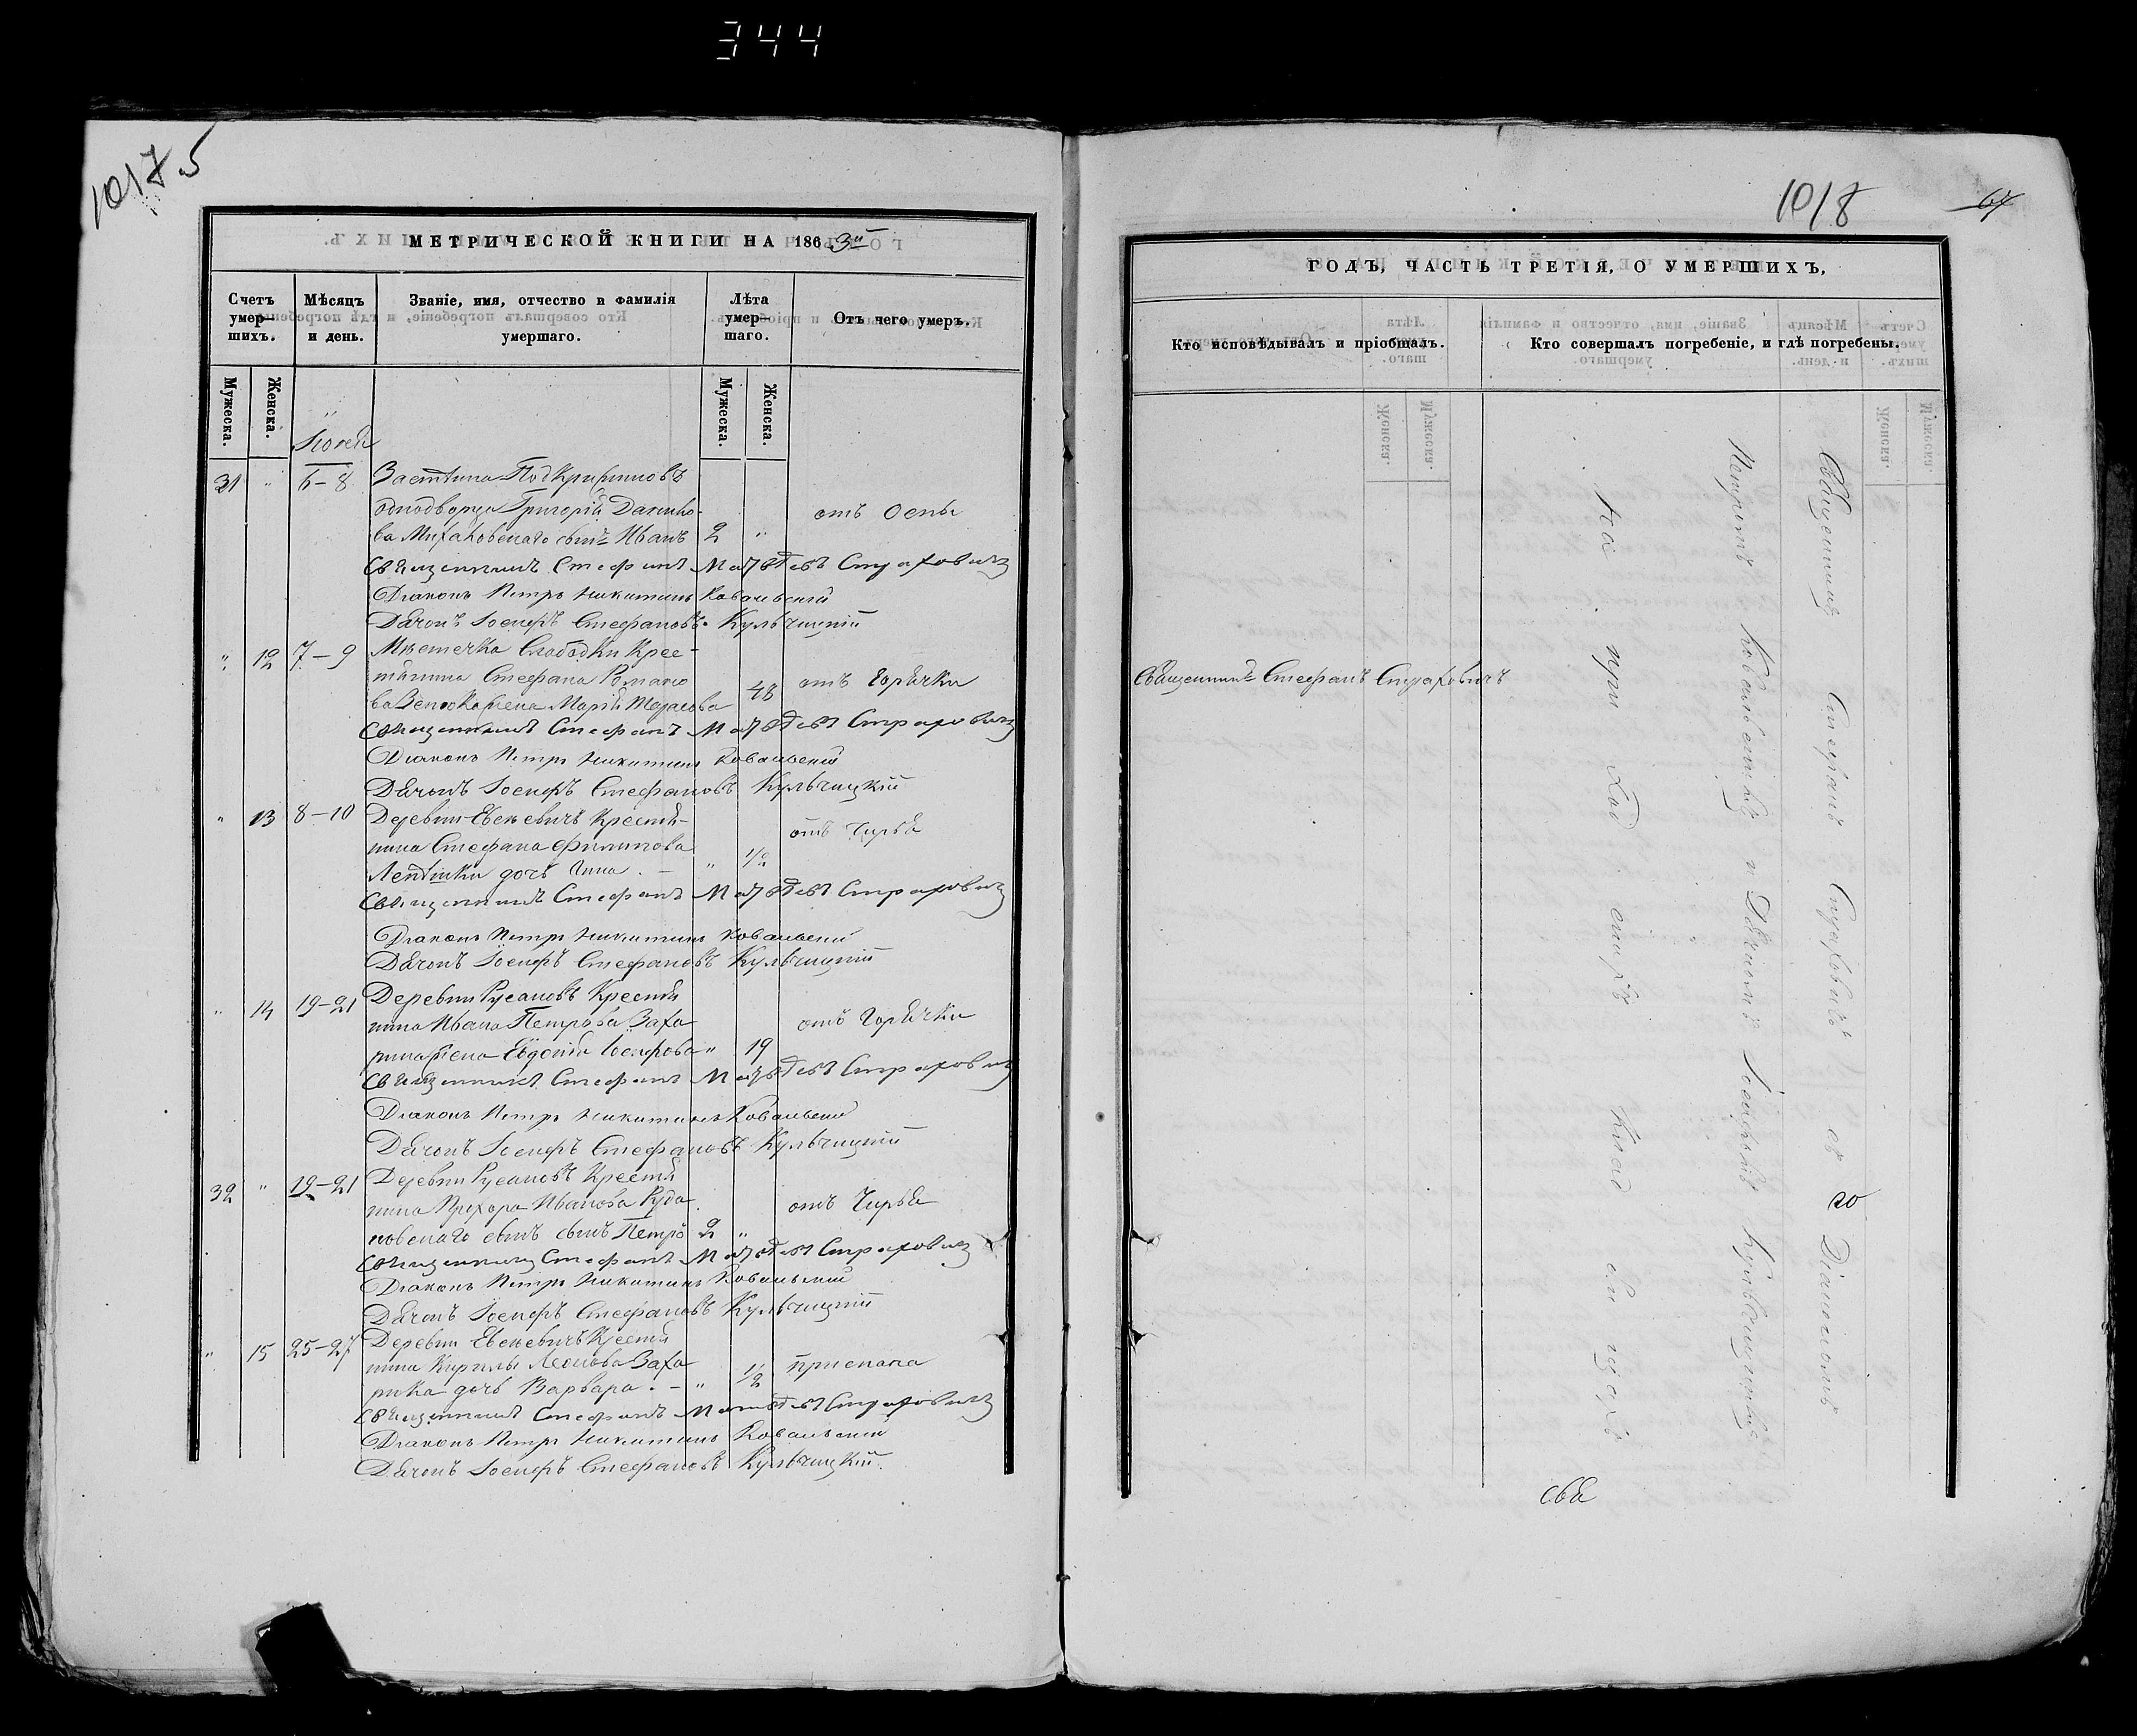 344
1017.5
МЕТРИЧЕСКОЙ КНИГИ НА 1863й
Счетъ умер-шихъ.
Мѣсяцъ и день.
Званіе, имя, отчество и фамилія умершаго.
Лѣта умер-шаго.
Отъ чего умеръ.
Мужеска.
Женска.
Мужеска.
Женска.
31 " 6-8
однодворца Григорія
сынъ Иванъ 2 " отъ Оспы
Священникъ Стефанъ Матвѣевъ Страховичъ
Діаконъ Петръ Никитинъ Ковальскій
Дячокъ Іосифъ Стефановъ Кульчицкій
" 12 7-9 Мѣстечка Слободки Крес-
тянина Стефана Романо
ва жена Марія 48 отъ Горячки
Священникъ Стефанъ Матвѣевъ Страховичъ
Діаконъ Петръ Никитинъ Ковальскій
Дячокъ Іосифъ Стефановъ Кульчицкій
" 13 8-10 Деревни Евсѣевичъ Крестя-
нина Стефана Филипова
дочь Анна. - " 1/2 отъ Чирья
Священникъ Стефанъ Матвѣевъ Страховичъ
Діаконъ Петръ Никитинъ Ковальскій
Дячокъ Іосифъ Стефановъ Кульчицкій
" 14 19-21 Деревни Русаковъ Крестя
нина Ивана Петрова Заха
рика жена Евдокія Іосифова " 19 отъ Горячки
Священникъ Стефанъ Матвѣевъ Страховичъ
Діаконъ Петръ Никитинъ Ковальскій
Дячокъ Іосифъ Стефановъ Кульчицкій
32 " 19-21 Деревни Русаковъ Крестя
нина Прохора Иванова Руда
ковскаго сынъ сынъ Петръ 2 " отъ Чирья
Священникъ Стефанъ Матвѣевъ Страховичъ
Діаконъ Петръ Никитинъ Ковальскій
Дячокъ Іосифъ Стефановъ Кульчицкій
" 15 25-27 Деревни Евсѣевичъ Крестя
нина Кирилы Леонова Заха
рика дочь Варвара. - " 1/2 приспана
Священникъ Стефанъ Матвѣевъ Страховичъ
Діаконъ Петръ Никитинъ Ковальскій
Дячокъ Іосифъ Стефановъ Кульчицкій.
1018
67
ГОДЪ, ЧАСТЬ ТРЕТІЯ, О УМЕРШИХЪ,
Кто исповѣдывалъ и пріобщалъ.
Кто совершалъ погребеніе, и гдѣ погребены.
Священникъ Стефанъ Страховичъ
Священникъ Стефанъ Страховичъ со Діакономъ
Петромъ Ковальскимъ и Дячкомъ Іосифомъ Кульчицкимъ
на при ход скихъ клад би щахъ
свя